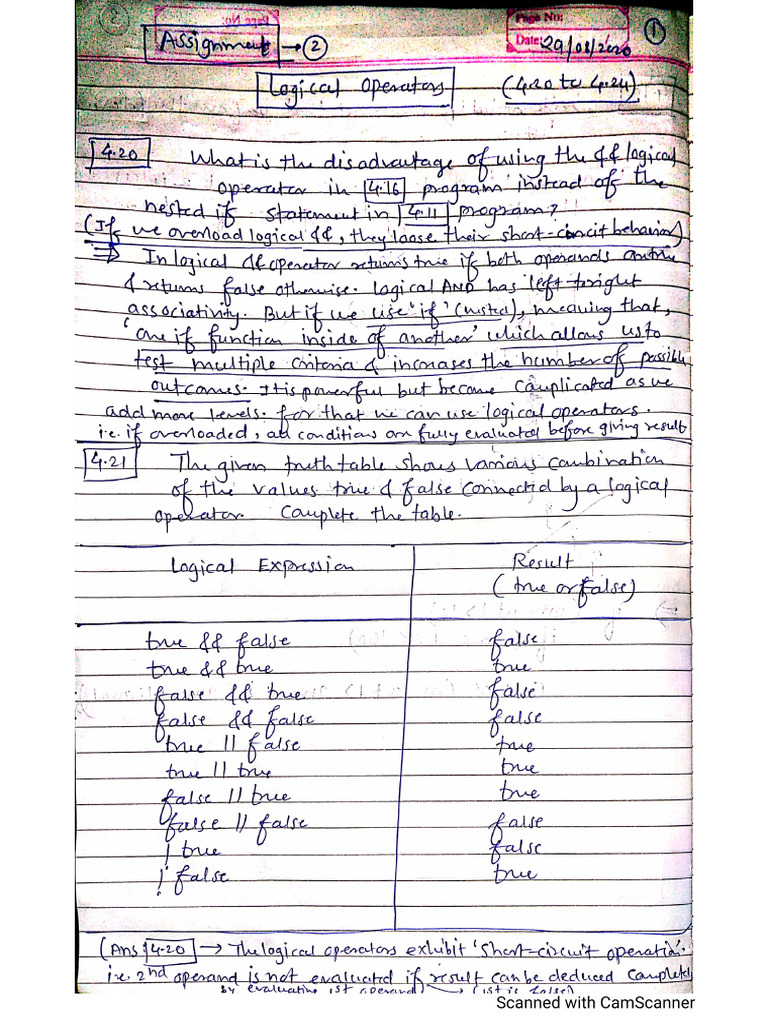 Assignment → ②
Page No:
Date: 29/08/2020
①
Logical Operators (4.20 to 4.24)
4.20 What is the disadvantage of using the && logical
operator in 4.16 program instead of the
nested if statement in 4.11 program?
(If we overload logical &&, they loose their short-circuit behavior)
⇒ In logical && operator returns true if both operands are true
& returns false otherwise. Logical AND has left to right
associativity. But if we use 'if' (nested), meaning that,
'one if function inside of another' which allows us to
test multiple criteria & increases the number of possible
outcomes. It is powerful but become complicated as we
add more levels. for that we can use logical operators.
i.e. if overloaded, all conditions are fully evaluated before giving result
4.21 The given truth table shows various combination
of the values true & false connected by a logical
operator. Complete the table.
Logical Expression Result
(true or false)
true && false false
true && true true
false && true false
false && false false
true || false true
true || true true
false || true true
false || false false
! true false
! false true
(Ans 4.20 → The logical operators exhibit 'short-circuit operation'.
i.e. 2nd operand is not evaluated if result can be deduced completely
by evaluating 1st operand) → (1st is false)
Scanned with CamScanner